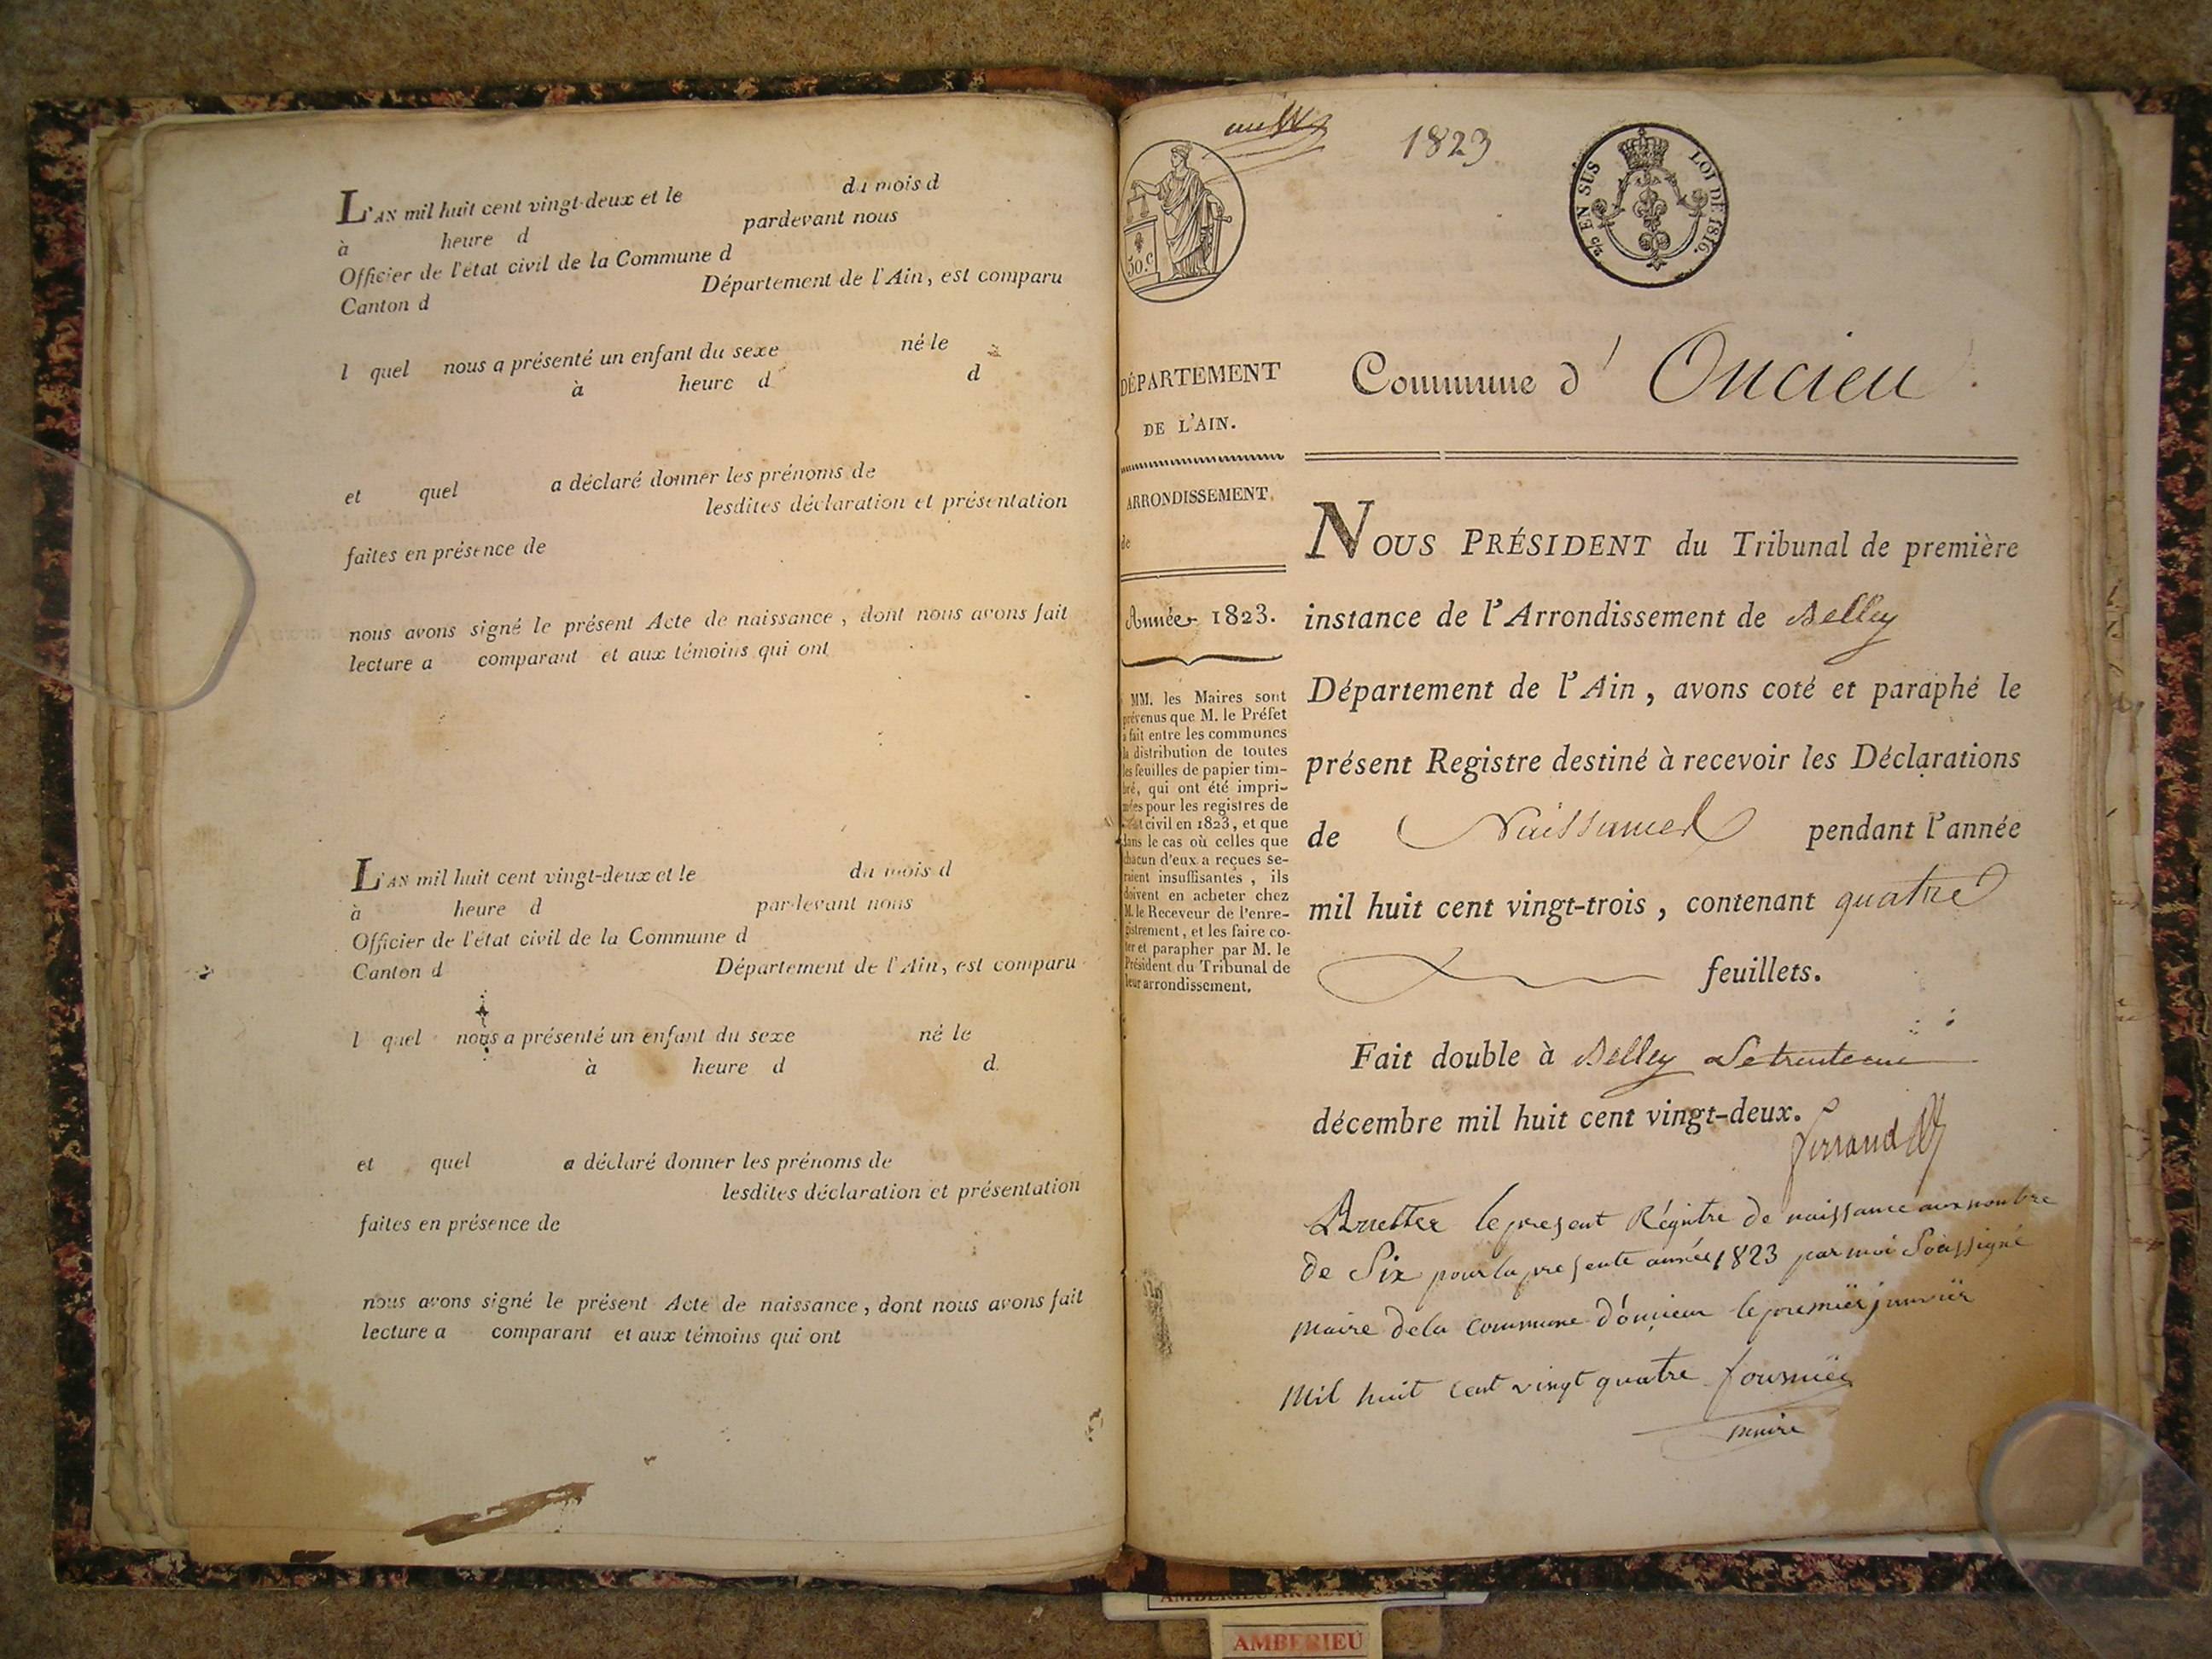 L'AN mil huit cent vingt-deux et le du mois d
à heure d pardevant nous
Officier de l'état civil de la Commune d
Canton d Département de l'Ain, est comparu
l quel nous a présenté un enfant du sexe né le
à heure d d
et quel a déclaré donner les prénoms de
lesdites déclaration et présentation
faites en présence de
nous avons signé le présent Acte de naissance, dont nous avons fait
lecture a comparant et aux témoins qui ont
L'AN mil huit cent vingt-deux et le du mois d
à heure d pardevant nous
Officier de l'état civil de la Commune d
Canton d Département de l'Ain, est comparu
l quel nous a présenté un enfant du sexe né le
à heure d d
et quel a déclaré donner les prénoms de
lesdites déclaration et présentation
faites en présence de
nous avons signé le présent Acte de naissance, dont nous avons fait
lecture a comparant et aux témoins qui ont
1823
50.c
EN SUS LOI DE 1816.
DÉPARTEMENT
DE L'AIN.
ARRONDISSEMENT
de
Année 1823.
MM. les Maires sont
prévenus que M. le Préfet
a fait entre les communes
la distribution de toutes
les feuilles de papier tim-
bré, qui ont été impri-
mées pour les registres de
l'état civil en 1823, et que
dans le cas où celles que
chacun d'eux a reçues se-
raient insuffisantes, ils
doivent en acheter chez
M. le Receveur de l'enre-
gistrement, et les faire co-
ter et parapher par M. le
Président du Tribunal de
leur arrondissement.
Commune d'Oncieu.
NOUS PRÉSIDENT du Tribunal de première
instance de l'Arrondissement de Belley
Département de l'Ain, avons coté et paraphé le
présent Registre destiné à recevoir les Déclarations
de Naissances pendant l'année
mil huit cent vingt-trois, contenant quatre
feuillets.
Fait double à Belley Le trente un
décembre mil huit cent vingt-deux.
ferrand
le present Régistre de naissance aux nombre
de Six pour la presente année 1823 par moi Soussigné
maire de la commune d'oncieu le premiër janviër
Mil huit cent vingt quatre fourniër
maire
AMBERIEU